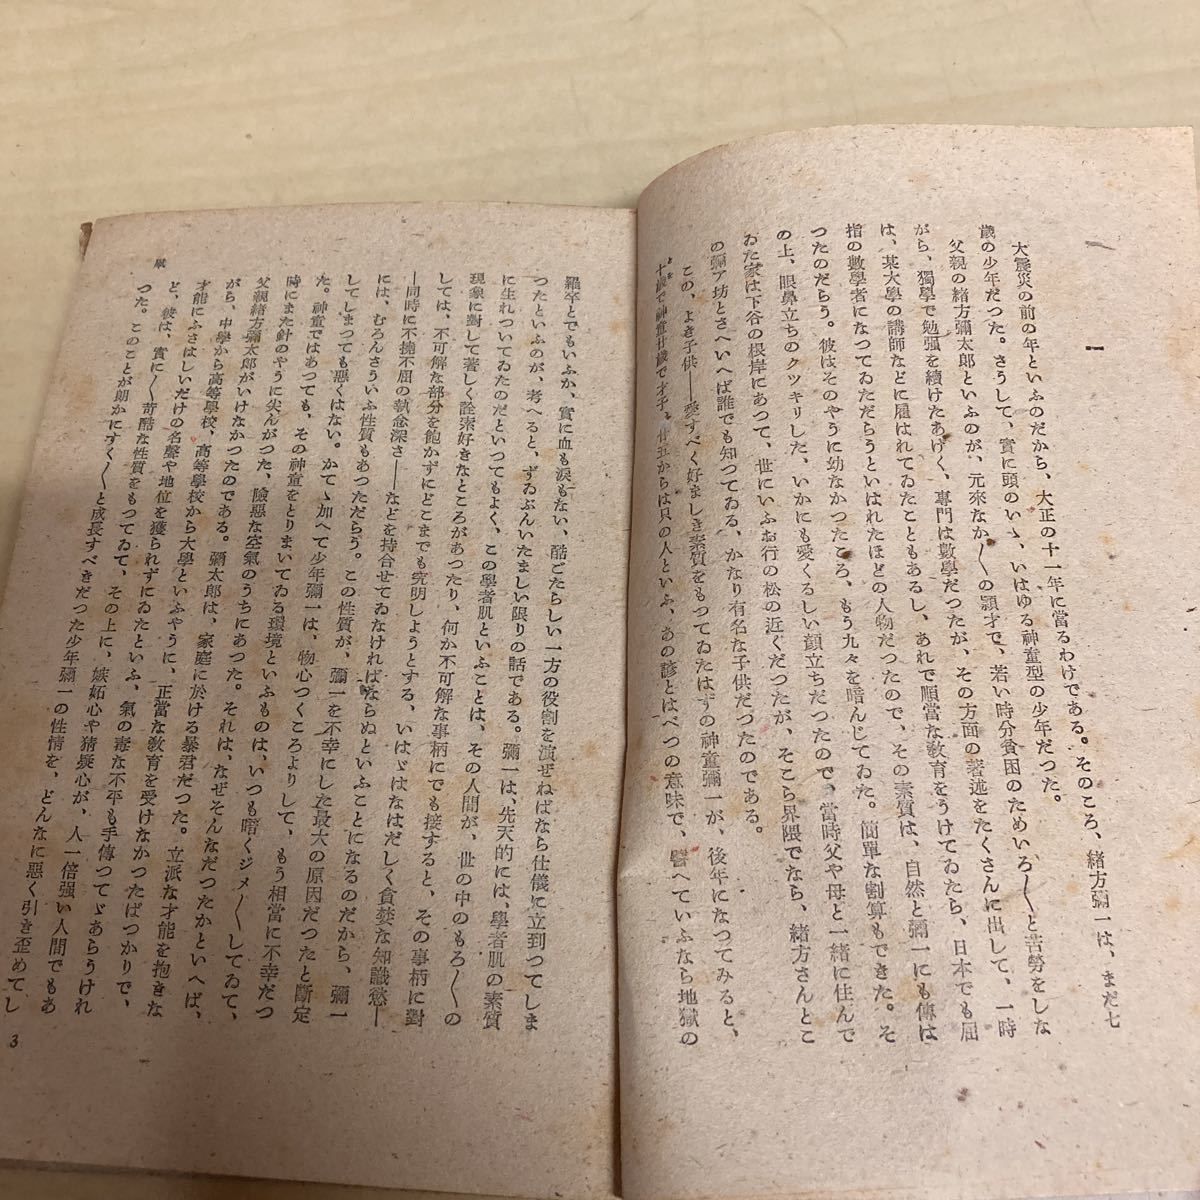 一
大震災の前の年といふのだから、大正の十一年に當るわけである。そのころ、緒方彌一は、まだ七
歳の少年だつた。さうして、實に頭のいゝ、いはゆる神童型の少年だつた。
父親の緒方彌太郎といふのが、元來なか〳〵の穎才で、若い時分貧困のためいろ〳〵と苦勞をしな
がら、獨學で勉强を續けたあげく、專門は數學だつたが、その方面の著述をたくさんに出して、一時
は、某大學の講師などに雇はれてゐたこともあるし、あれで順當な敎育をうけてゐたら、日本でも屈
指の數學者になつてゐただらうといはれたほどの人物だつたので、その素質は、自然と彌一にも傳は
つたのだらう。彼はそのやうに幼なかつたころ、もう九々を暗んじてゐた。簡單な割算もできた。そ
の上、眼鼻立ちのクツキリした、いかにも愛くるしい顏立ちだつたので、當時父や母と一緖に住んで
ゐた家は下谷の根岸にあつて、世にいふお行の松の近くだつたが、そこら界隈でなら、緒方さんとこ
の彌ア坊とさへいへば誰でも知つてゐる、かなり有名な子供だつたのである。
この、よき子供――愛すべく好ましき素質をもつてゐたはずの神童彌一が、後年になつてみると、
十歳で神童廿歳で才子、廿五からは只の人といふ、あの諺とはべつの意味で、譬へていふなら地獄の
羅卒とでもいふか、實に血も涙もない、酷ごたらしい一方の役割を演ぜねばなら仕儀に立到つてしま
つたといふのが、考へると、ずゐぶんいたましい限りの話である。彌一は、先天的には、學者肌の素質
に生れついてゐたのだといつてもよく、この學者肌といふことは、その人間が、世の中のもろ〳〵の
現象に對して著しく詮索好きなところがあつたり、何か不可解な事柄にでも接すると、その事柄に對
しては、不可解な部分を飽かずにどこまでも究明しようとする、いはゞはなはだしく貪婪な知識慾―
―同時に不撓不屈の執念深さ――などを持合せてゐなければならぬといふことになるのだから、彌一
には、むろんさういふ性質もあつただらう。この性質が、彌一を不幸にした最大の原因だつたと斷定
してしまつても惡くはない。かてゝ加へて少年彌一は、物心つくころよりして、もう相當に不幸だつ
た。神童ではあつても、その神童をとりまいてゐる環境といふものは、いつも暗くジメ〳〵してゐて、
時にまた針のやうに尖んがつた、險惡な空氣のうちにあつた。それは、なぜそんなだつたかといへば、
父親緒方彌太郎がいけなかつたのである。彌太郎は、家庭に於ける暴君だつた。立派な才能を抱きな
がら、中學から高等學校、高等學校から大學といふやうに、正當な敎育を受けなかつたばつかりで、
才能にふさはしいだけの名聲や地位を獲られずにゐたといふ、氣の毒な不平も手傳つてゞあらうけれ
ど、彼は、實に〳〵苛酷な性質をもつてゐて、その上に、嫉妬心や猜疑心が、人一倍强い人間でもあ
つた。このことが朗かにすく〳〵と成長すべきだつた少年彌一の性情を、どんなに惡く引き歪めてし
3